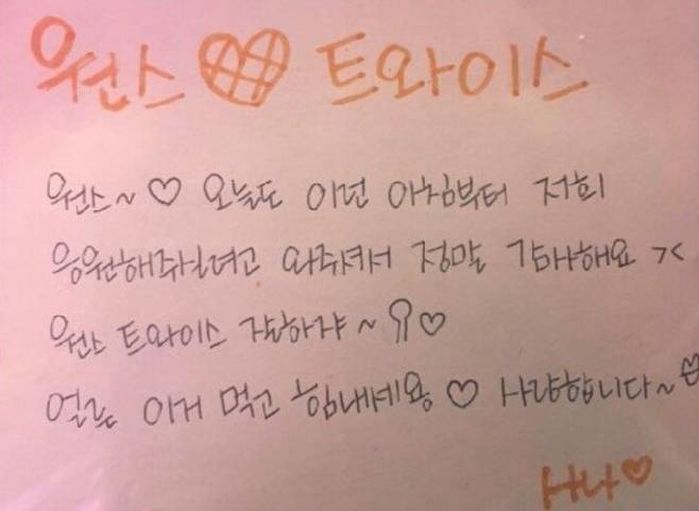 원스♡ 트와이스
원스~♡ 오늘도 이런 아침부터 저희
응원해주실려고 와주셔서 정말 감사해요 ><
원스 트와이스 잘하쟈~ ♡
얼른 이거 먹고 힘내세용♡ 사랑합니다~
나♡